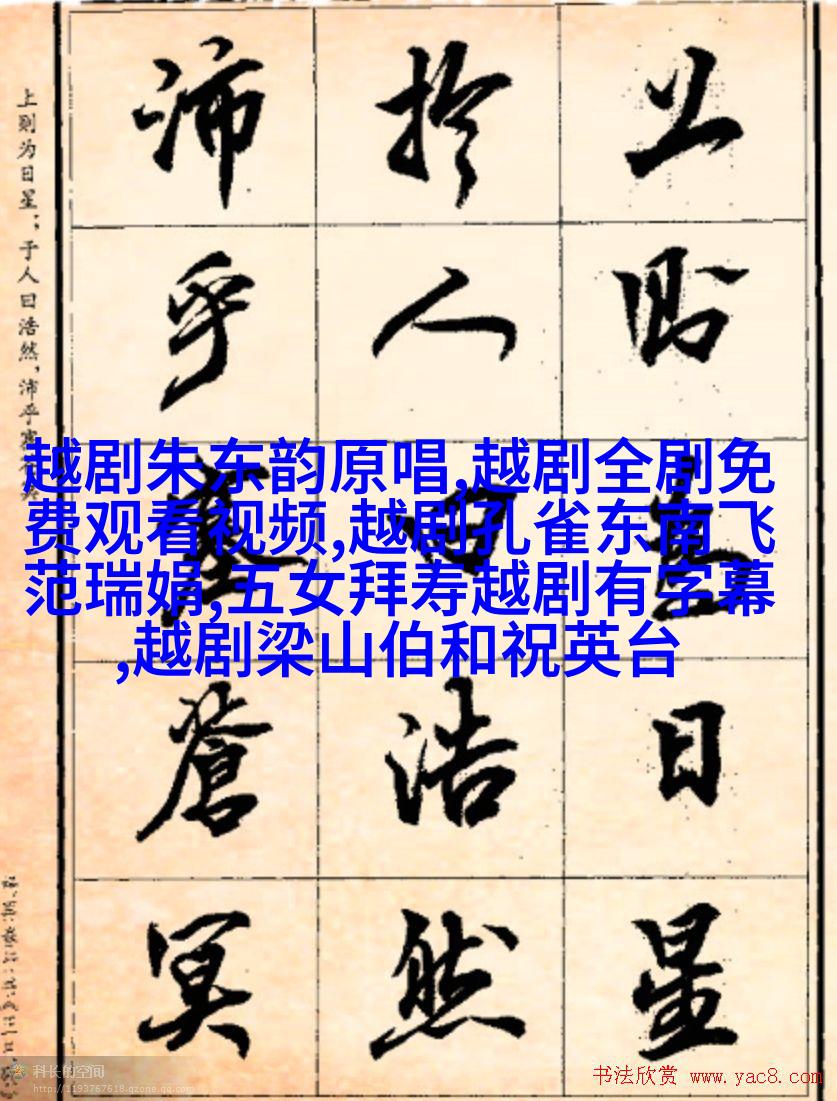 上則為日星
於人曰浩然
沛乎塞蒼冥
上则为日星;于人曰浩然,沛乎塞
越剧朱东韵原唱,越剧全剧免
费观看视频,越剧孔雀东南飞
范瑞娟,五女拜寿越剧有字幕
,越剧梁山伯和祝英台
科长的空间
http://1193767618.qzone.qq.com
书法欣赏 www.yac8.com